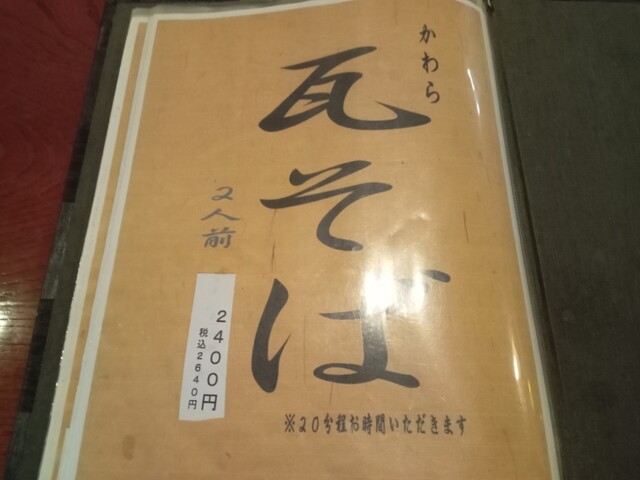 かわら
瓦そば
2人前
2400円
税込2640円
※20分程お時間いただきます